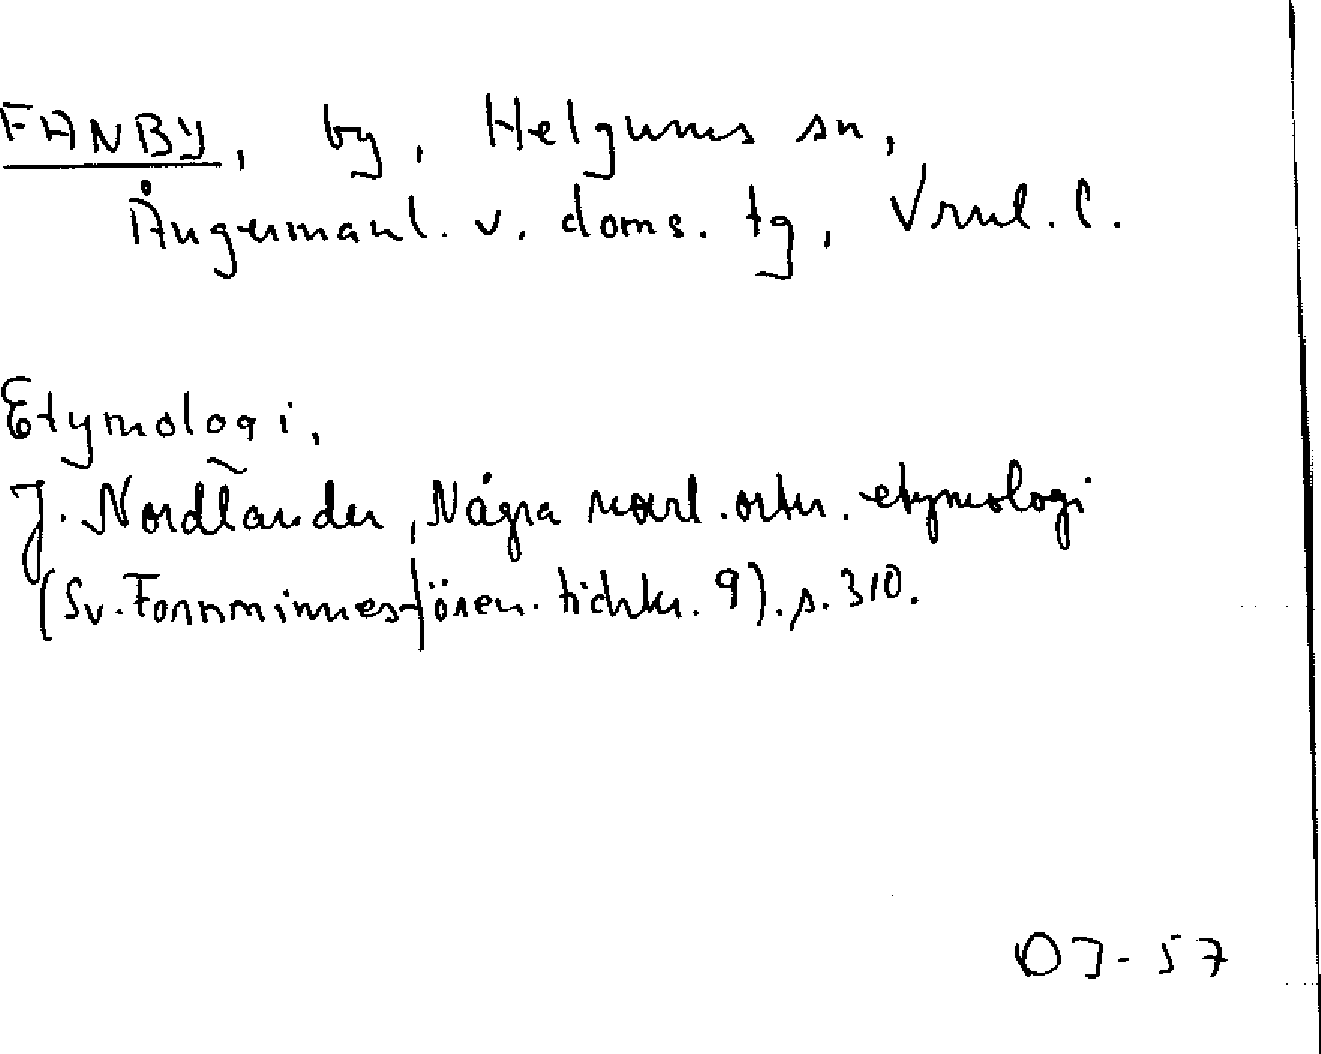 FANBY, by, Helgums sn,
Ångermanl. v. doms. tg, Vrnl. l.
Etymologi.
J. Nordlander, Några norrl. ortn. etymologi
(Sv. Fornminnesfören. tidskr. 9). s. 310.
OJ-57